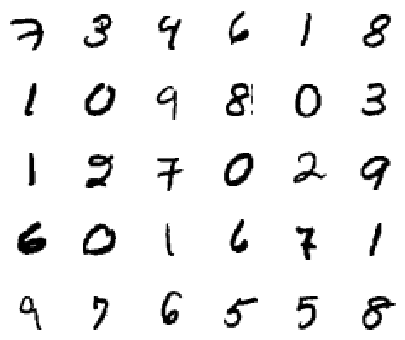 7 3 4 6 1 8
1 0 9 8 0 3
1 2 7 0 2 9
6 0 1 6 7 1
9 7 6 5 5 8